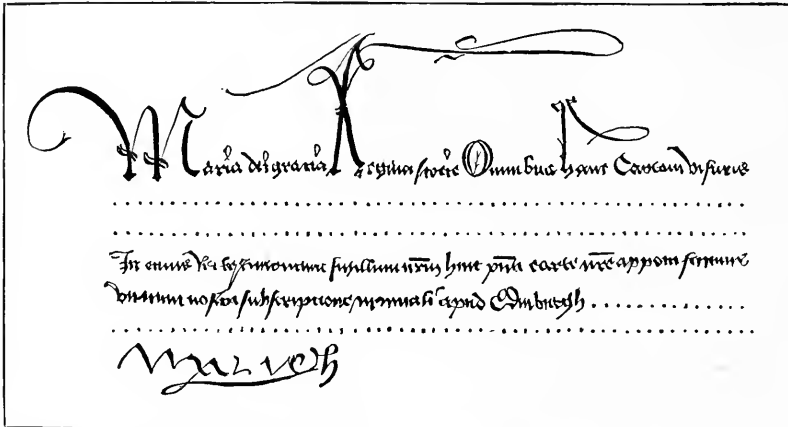 Maria dei gracia Regina scotor Omnibus hanc Cartam visuris
In cuius Rei testimonium sigillum nrm huic pnti carte nre apponi fecimus
vnacum nostra subscriptione manuali apud Edinburgh